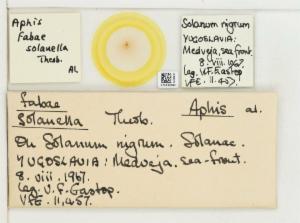 Aphis
fabae
solanella
Theob.
Al.
Solanum nigrum
YUGOSLAVIA:
Medveja, sea front.
8. viii. 1967.
leg. V.F. Eastop
VFE. 11,457.
fabae
solanella Theob. Aphis al.
On Solanum nigrum. Solanac.
YUGOSLAVIA: Medveja. sea-front.
8. viii. 1967.
leg. V. F. Eastop.
VFE. 11,457.